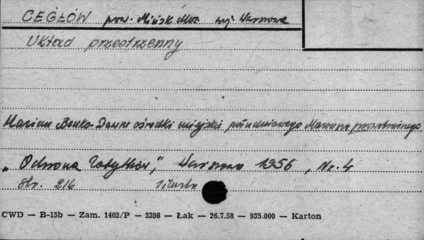 CEGŁÓW pow. Mińsk Maz. woj. Warszawa
Układ przestrzenny
Marian Benko - Dawne ośrodki miejskie
"Ochrona Zabytków", Warszawa 1956, Nr. 4
Str. 216
CWD — B-15b — Zam. 1402/P — 2398 — Łak — 26.7.58 — 935.000 — Karton